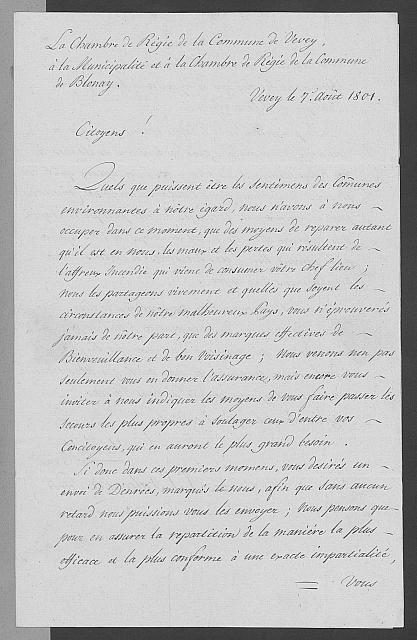 La Chambre de Régie de la Commune de Vevey,
à la Municipalité et à la Chambre de Régie de la Commune
de Blonay.
Vevey le 7.e Août 1801.
Citoyens !
Quels que puissent être les sentimens des Com̄unes
environnantes à nôtre égard, nous n'avons à nous –
occuper dans ce moment, que des moyens de reparer autant
qu'il est en nous, les maux et les pertes qui résultent de –
l'affreux Incendie qui vient de consumer vôtre Chef lieu ;
Nous les partageons vivement et quelles que soyent les –
circonstances de nôtre malheureux Pays, vous n'éprouverés
jamais de nôtre part, que des marques effectives de –
Bienveuillance et de bon Voisinage ; Nous venons non pas
seulement vous en donner l'assurance, mais encore vous –
inviter à nous indiquer les moyens de vous faire passer les
secours les plus propres à soulager ceux d'entre vos –
Concitoyens, qui en auront le plus grand besoin .
Si donc dans ces premiers momens, vous désirés un –
envoi de Denrées, marqués le nous, afin que sans aucun
retard nous puissions vous les envoyer ; Nous pensons que –
pour en assurer la repartition de la maniére la plus –
efficace et la plus conforme à une exacte impartialité,
Vous